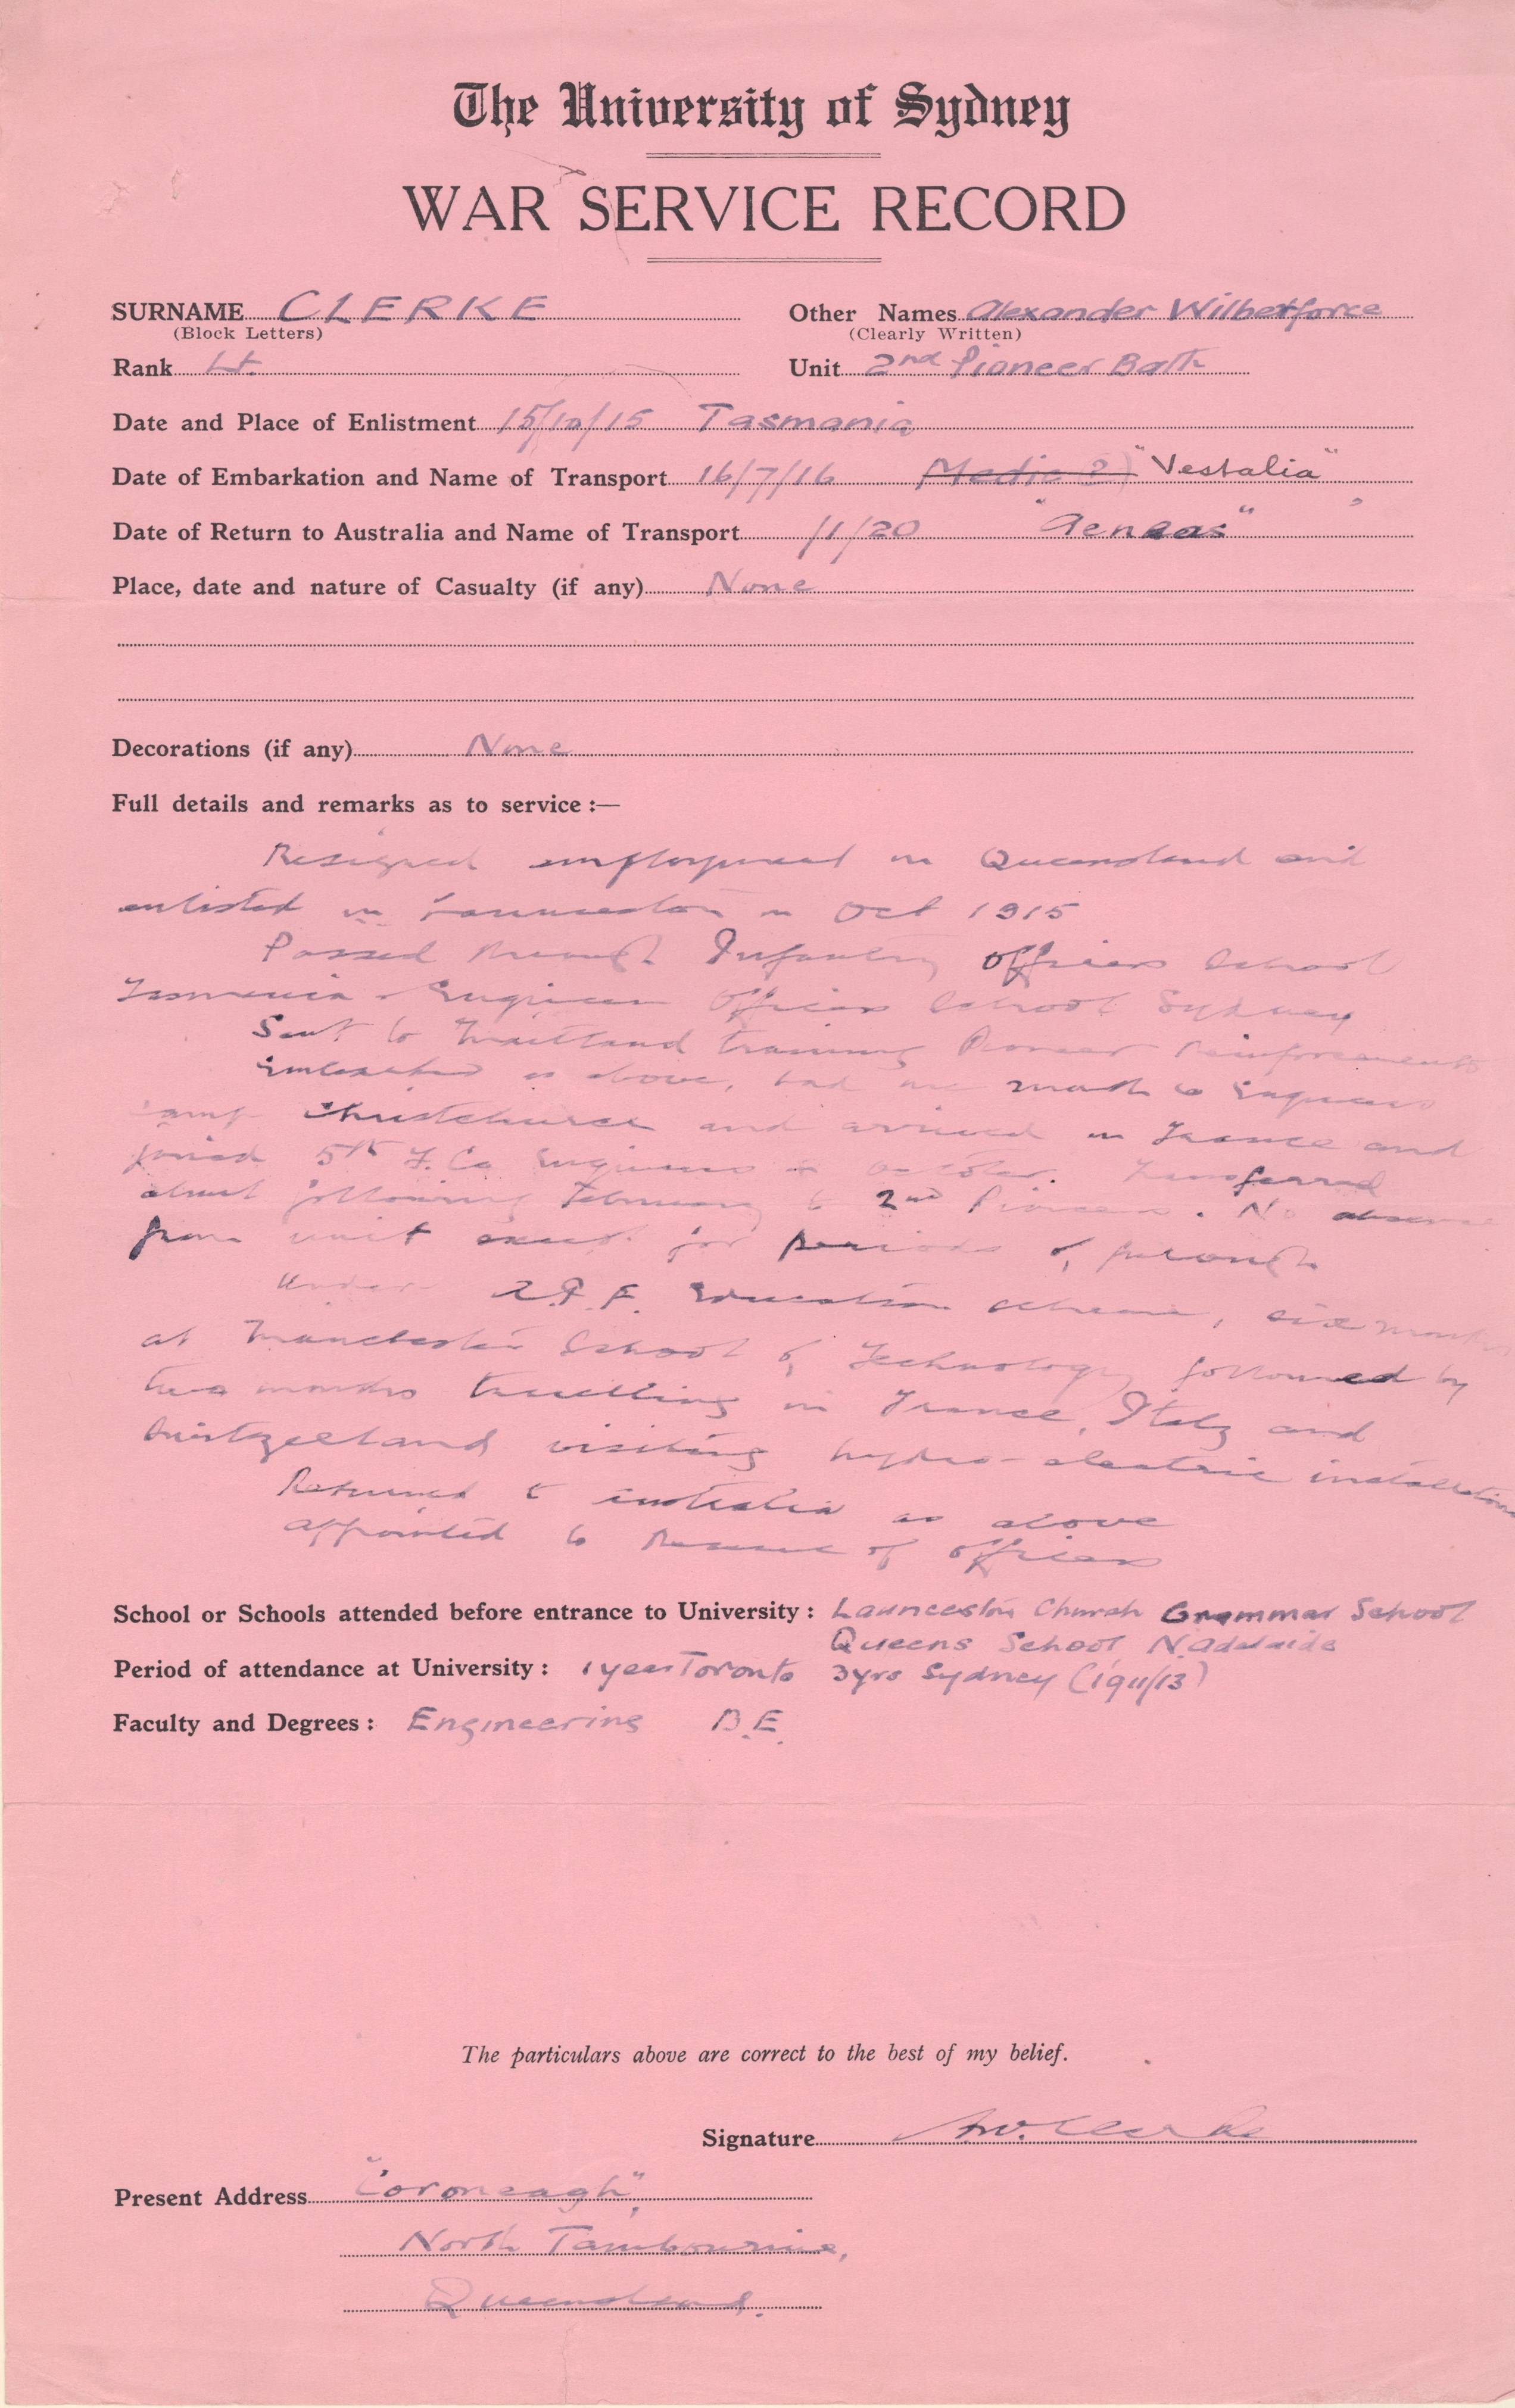 The University of Sydney
WAR SERVICE RECORD
SURNAME CLERKE Other Names Alexander Wilberforce
(Block Letters) (Clearly Written)
Rank Lt. Unit 2nd Pioneer Battn
Date and Place of Enlistment 15/10/15 Tasmania
Date of Embarkation and Name of Transport 16/7/16 Medic ?) "Vestalia"
Date of Return to Australia and Name of Transport /1/20 "Aeneas"
Place, date and nature of Casualty (if any) None
Decorations (if any) None
Full details and remarks as to service :—
Resigned employment in Queensland and
enlisted in Launceston in Oct 1915
Passed through Infantry Officers School
Tasmania & Engineer Officers School Sydney
Sent to Maitland training Pioneer Reinforcements
Embarked as above, had one month at Engineers
camp Christchurch and arrived in France and
joined 5th F. Co Engineers in October. Transferred
about following February to 2nd Pioneers. No absence
from unit except for periods of furlough
Under A.I.F. Education scheme, six months
at Manchester School of Technology followed by
two months travelling in France, Italy and
Switzerland visiting hydro-electric installations
Returned to Australia as above
appointed to Reserve of Officers
School or Schools attended before entrance to University : Launceston Church Grammar School
Queens School N. Adelaide
Period of attendance at University : 1 year Toronto 3 yrs Sydney (1911/13)
Faculty and Degrees : Engineering B.E.
The particulars above are correct to the best of my belief.
Signature A.W. Clerke
Present Address "Coroneagh",
North Tambourine,
Queensland.